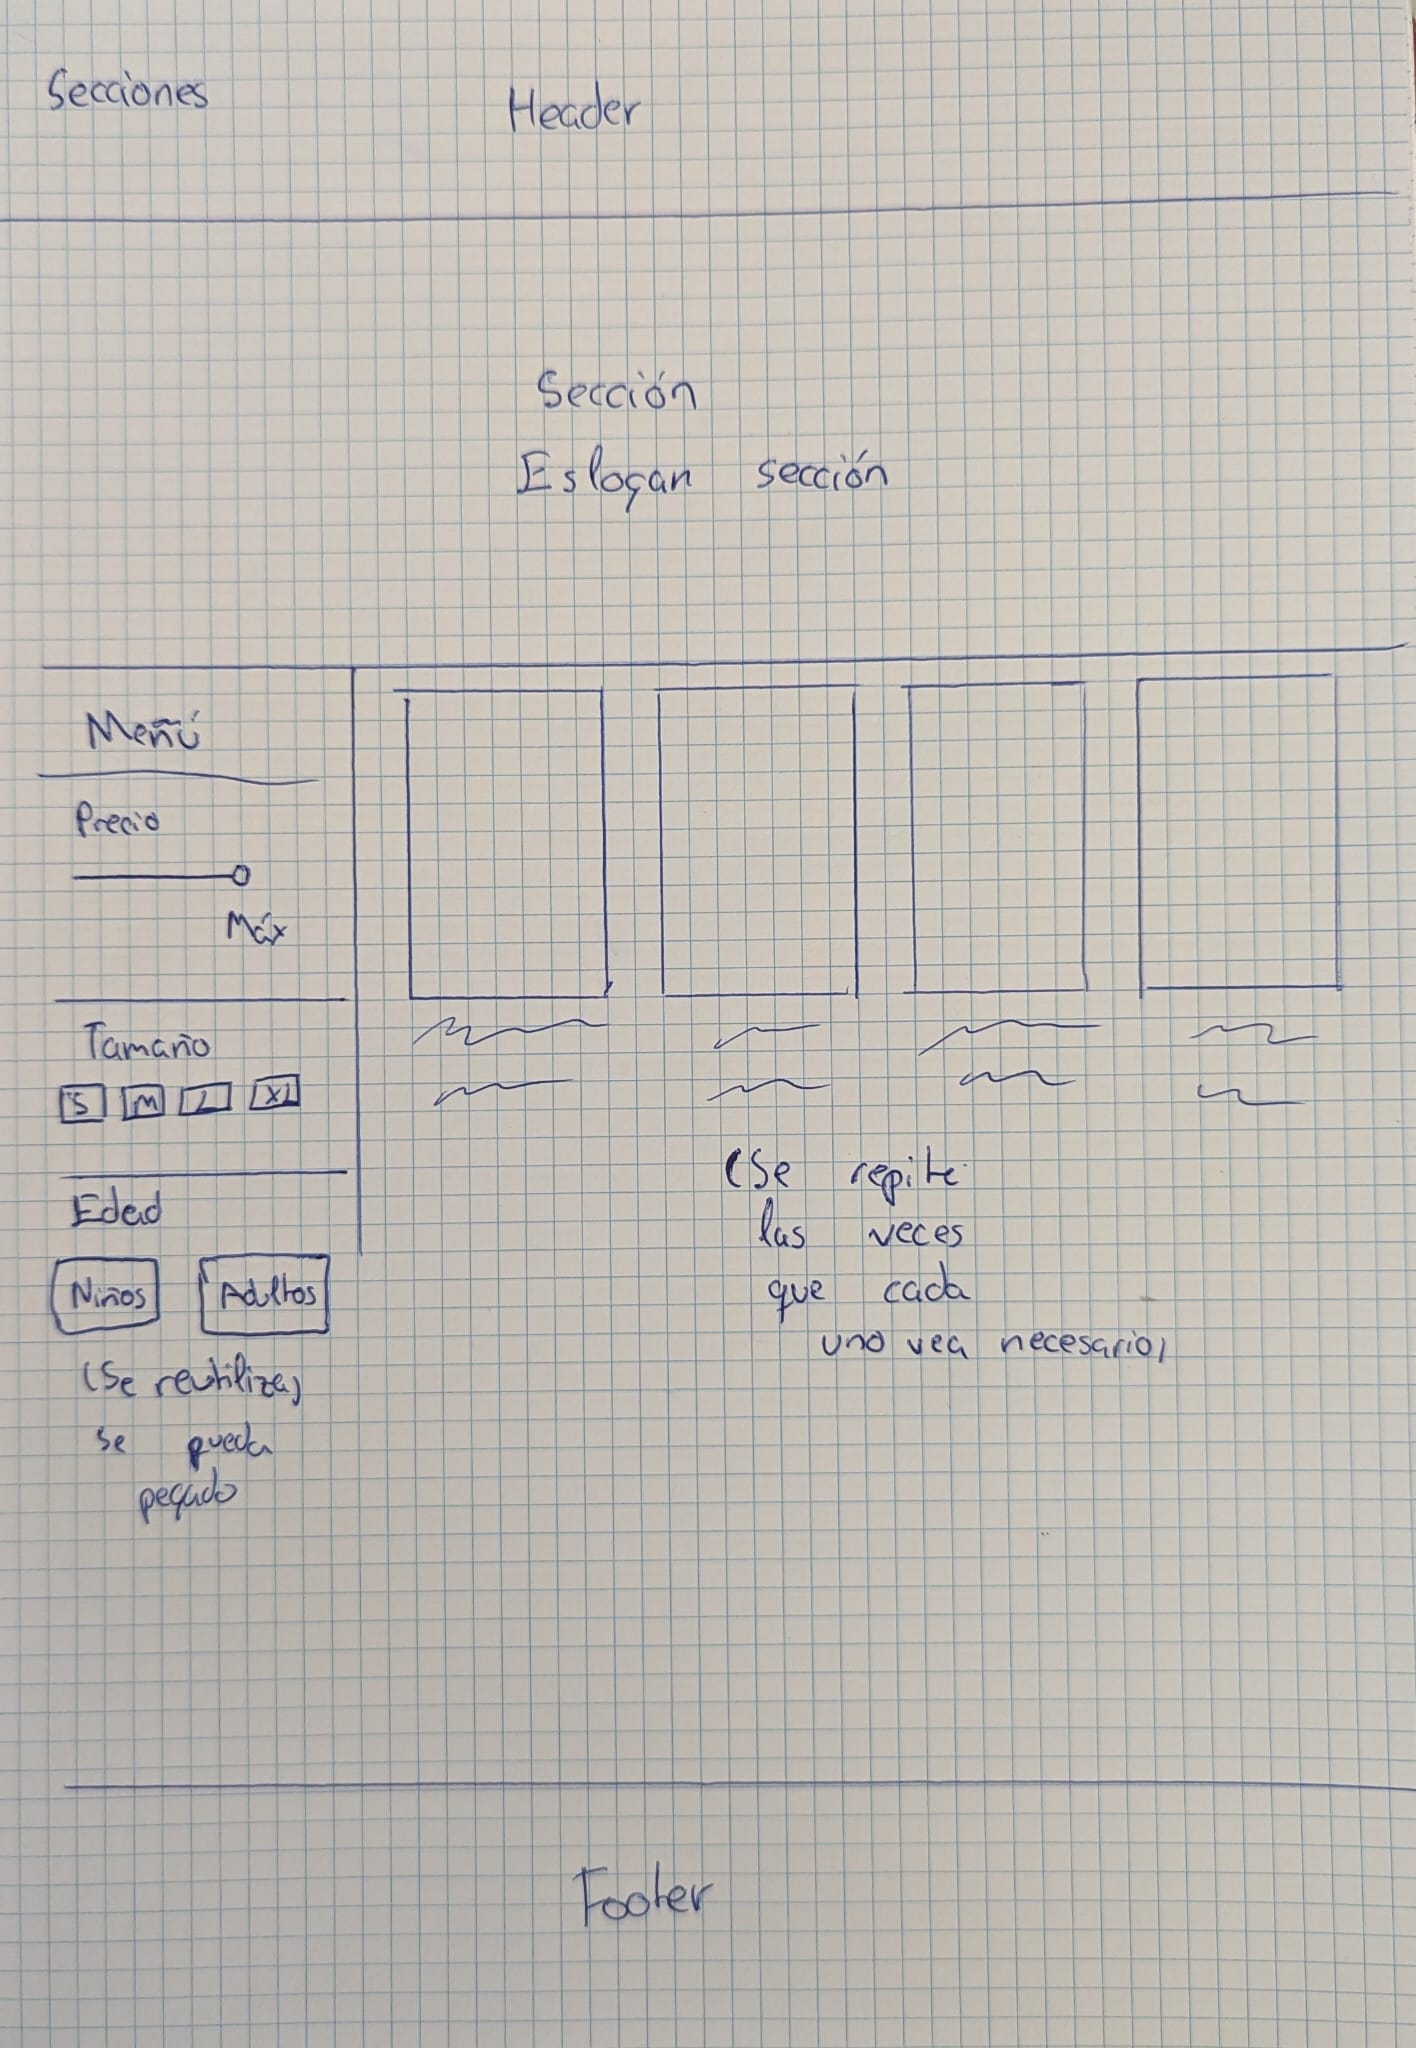 Secciones
Header
Sección
Eslogan sección
Meñú
Precio
Máx
Tamaño
S M L XL
Edad
Niños Adultos
(Se reutiliza)
se queda
pegado
(Se repite
las veces
que cada
uno vea necesario)
Footer